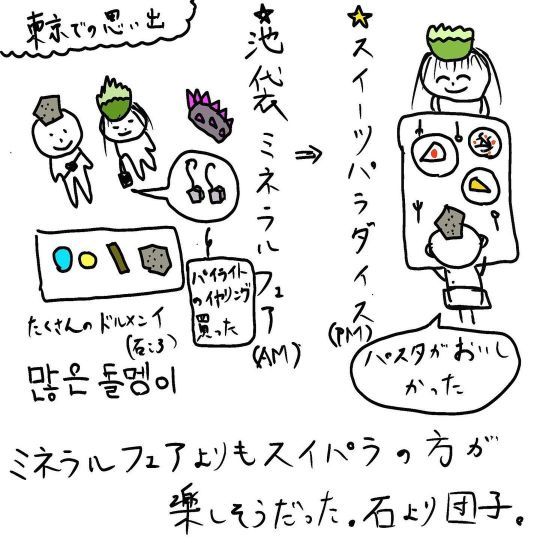 東京での思い出
☆池袋ミネラルフェア(AM)
⇒
☆スイーツパラダイス(PM)
パイライト
のイヤリング
買った
たくさんのドルメンイ
(石ころ)
많은 돌멩이
パスタがおいし
かった
ミネラルフェアよりもスイパラの方が
楽しそうだった。石より団子。